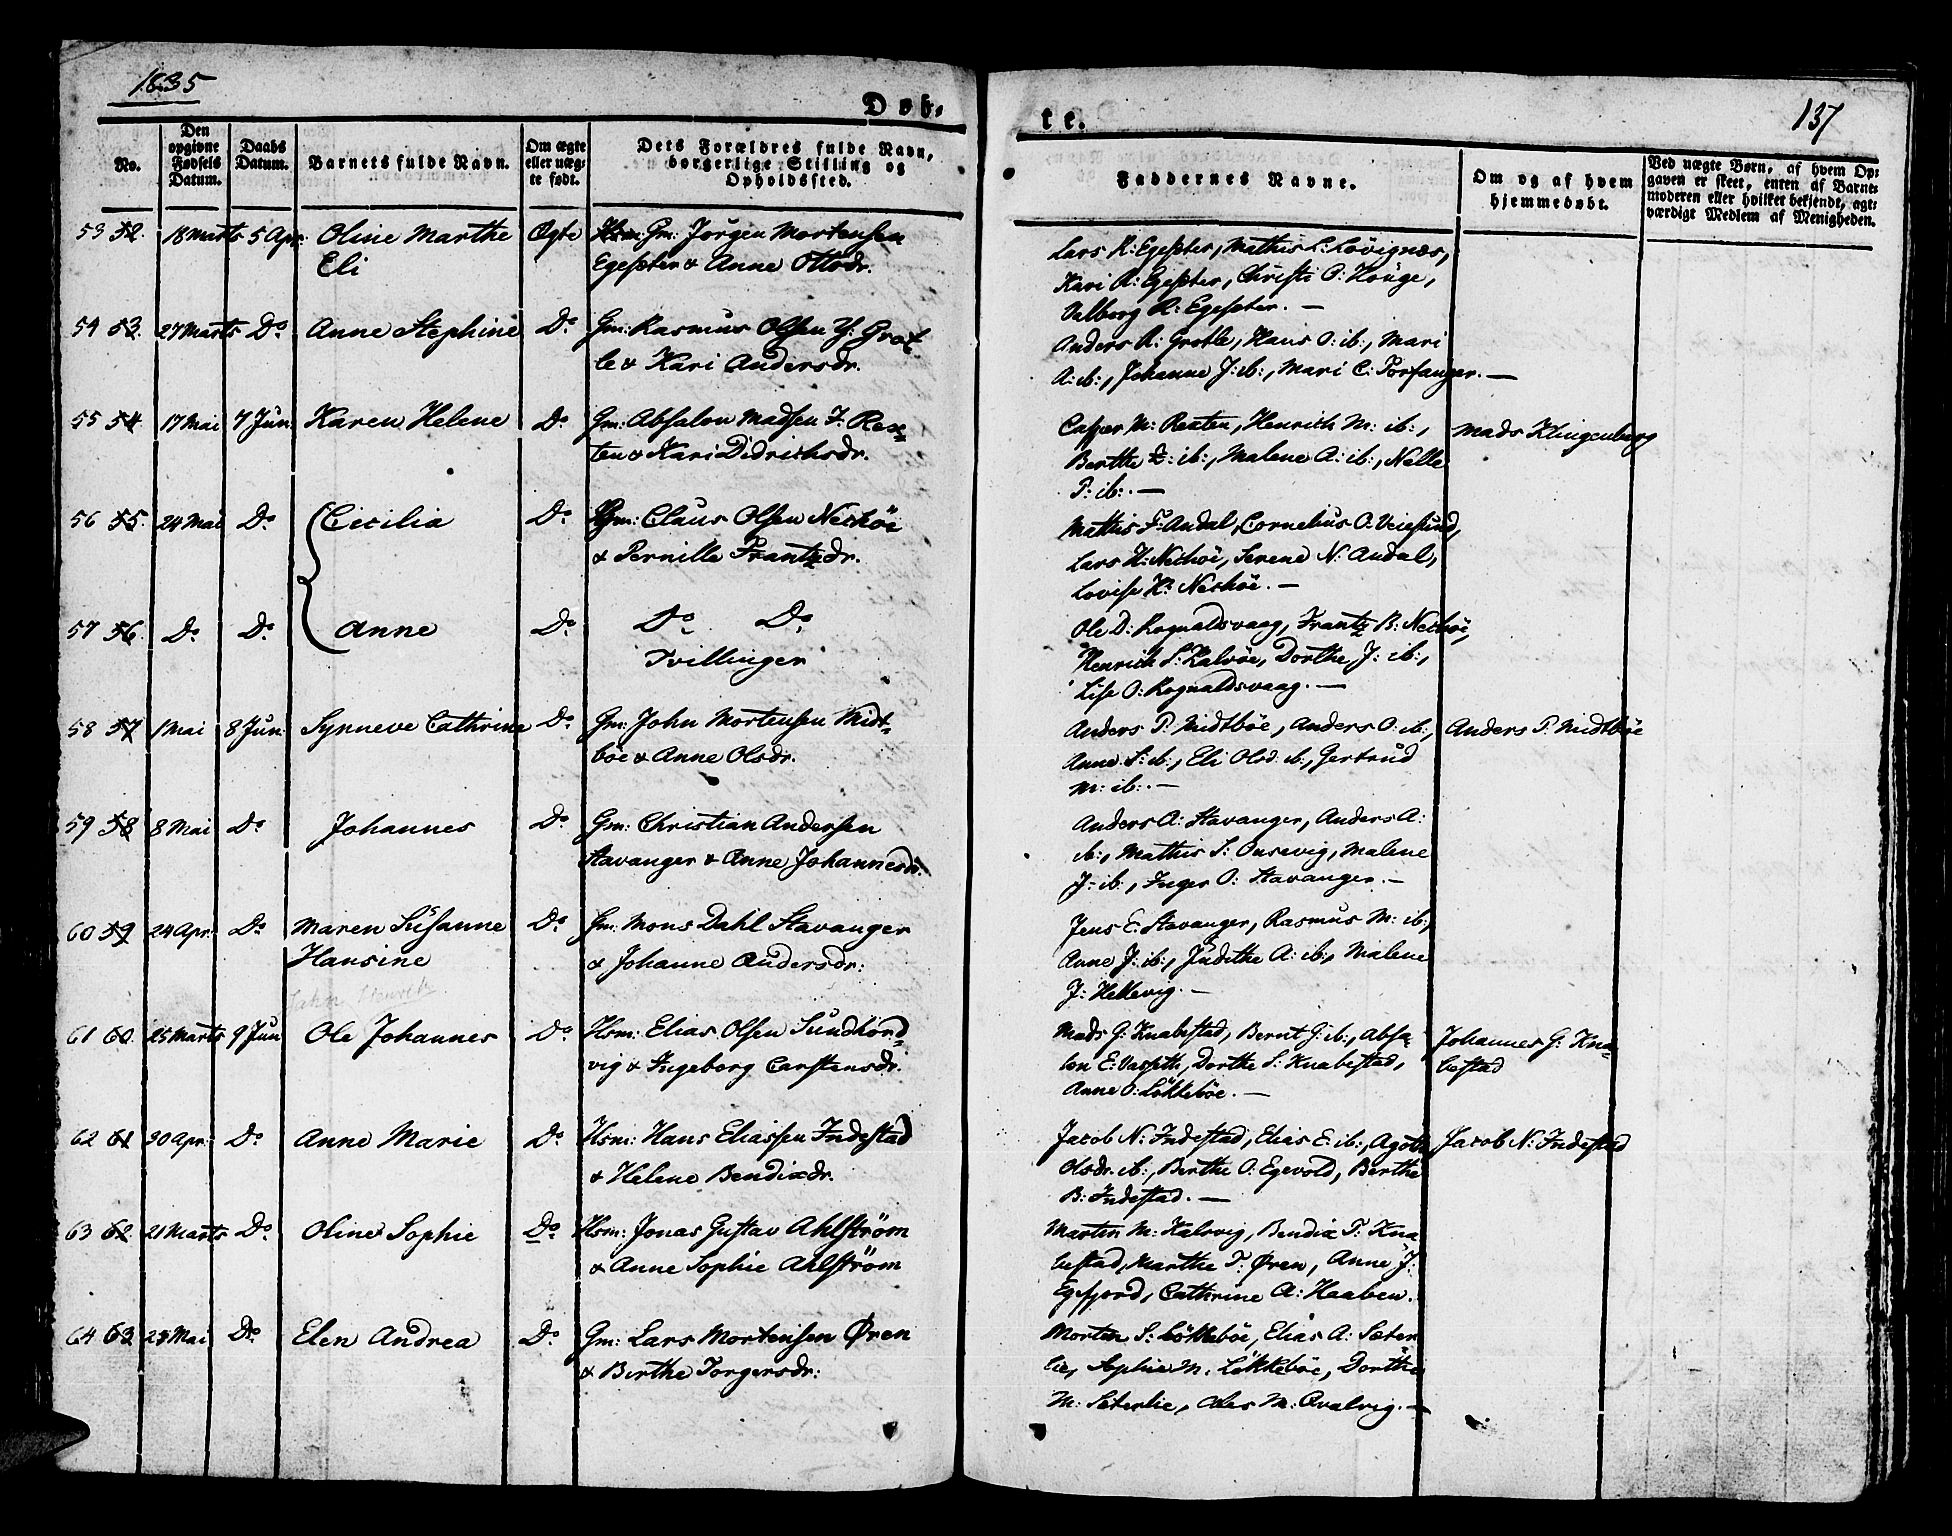 1835
Døb-
te.
137
No.
Den opgivne Fødsels Datum.
Daabs Datum.
Barnets fulde Navn.
Om ægte eller uægte født.
Dets Forældres fulde Navn, borgerlige Stilling og Opholdssted.
Faddernes Navne.
Om og af hvem hjemmedøbt.
Ved uægte Børn, af hvem Opgaven er skeet, enten af Barnemoderen eller hvilket bekjendt, agtværdigt Medlem af Menigheden.
53 52. 18 Marts 5 Apr. Oline Marthe Ægte Gm: Jørgen Mortensen
Eli Egesæter & Anne Ottosdr.
Lars R: Egesæter, Mathis L: Løvignæs,
Kari R: Egesæter, Christi O: Houge,
Valborg R: Egesæter. —
54 53. 27 Marts Do Anne Stephine Do Gm: Rasmus Olsen Y: Grot
le & Kari Andersdr.
Anders R: Grotle, Hans O: ib:, Mari
A: ib:, Johanne J: ib:, Mari C: Torfanger. —
55 54 17 Mai 7 Jun. Karen Helene Do Gm: Absalon Madsen Rex-
ten & Kari Didrichsdr.
Casper M: Rexten, Henrich M: ib:, Mads Klingenberg
Berthe ib:, Malene A: ib:, Nelle
P: ib:. —
56 55. 24 Mai Do Cicilia Do Gm: Claus Olsen Neshöe
& Pernille Frantzdr.
Mathis F: Andal, Cornelius O: Veiesund,
Lars H: Neshöe, Serene N: Andal,
Lovise H: Neshöe. —
57 56. Do Do Anne Do Do Do
Tvillinger
Ole D: Rognaldsvaag, Frantz B: Neshöe,
Henrich S: Kalvöe, Dorthe J: ib:,
Lise O: Rognaldsvaag. —
58 57 1 Mai 8 Jun. Synneve Cathrine Do Gm: John Mortensen Midt-
böe & Anne Olsdr.
Anders P: Midtböe, Anders O: ib:, Anders P: Midtböe
Anne S: ib:, Eli Olsd: ib:, Gertrud
M: ib:. —
59 58 8 Mai Do Johannes Do Gm: Christian Andersen
Stavanger & Anne Johannesdr.
Anders A: Stavanger, Anders A:
ib:, Mathis S: Ousevig, Malene
J: ib:, Inger O: Stavanger. —
60 59 24 Apr. Do Maren Susanne Do Gm: Mons Dahl Stavanger
Hansine & Johanne Andersdr:
Jens E: Stavanger, Rasmus M: ib:,
Anne J: ib:, Judithe A: ib:, Malene
J: Hellevig. —
61 60. 25 Marts 9 Jun Ole Johannes Do Hsm: Elias Olsen Sundhörd-
vig & Ingeborg Carstensdr.
Mads G: Knabestad, Bernt G: ib:, Absa- Johannes G: Kna-
lon E: Vasseth, Dorthe S: Knabestad, bestad
Anne O: Lökkeböe. —
62 61 30 Apr: Do Anne Marie Do Hsm: Hans Eliassen Indestad
& Helene Bendixdr.
Jacob N: Indestad, Elias E: ib:, Agothe Jacob N: Indestad
Olsdr. ib:, Berthe O: Egevold, Berthe
B: Indestad. —
63 62. 21 Marts Do Oline Sophie Do Hsm: Jonas Gustav Ahlström
& Anne Sophie Ahlström
Morten M: Kalvvig, Bendix T: Kna
bestad, Marthe T: Øren, Anne J:
Egefjord, Cathrine A: Haaben.
64 63 Mai Do Elen Andrea Do Gm: Lars Mortensen Øren
& Berthe Torgersdr:
Morten S: Lökkeböe, Elias A: Sæter
lie, Sophie M. Lökkeböe, Dorthe
M: Seterlie, M: Qvalvig. —